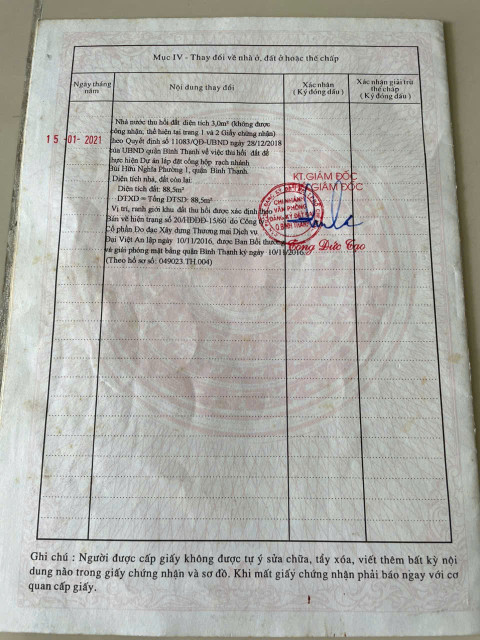 Mục IV - Thay đổi về nhà ở, đất ở hoặc thế chấp
Ngày tháng năm
Nội dung thay đổi
Xác nhận
( Ký đóng dấu )
Xác nhận giải trừ
thế chấp
( Ký đóng dấu )
15 -01- 2021
Nhà nước thu hồi đất diện tích 3,0m² (không được
công nhận, thể hiện tại trang 1 và 2 Giấy chứng nhận)
theo Quyết định số 11083/QĐ-UBND ngày 28/12/2018
của UBND quận Bình Thạnh về việc thu hồi đất để
thực hiện Dự án lắp đặt cống hộp rạch nhánh
Bùi Hữu Nghĩa Phường 1, quận Bình Thạnh.
Diện tích nhà, đất còn lại:
Diện tích đất: 88,5m²
DTXD = Tổng DTSD: 88,5m²
Vị trí, ranh giới khu đất thu hồi được xác định theo
Bản vẽ hiện trạng số 201/ĐĐĐ-15/60 do Công ty
Cổ phần Đo đạc Xây dựng Thương mại Dịch vụ
Đại Việt An lập ngày 10/11/2016, được Ban Bồi thường
và giải phóng mặt bằng quận Bình Thạnh ký ngày 10/11/2016.
(Theo hồ sơ số: 049023.TH.004)
KT.GIÁM ĐỐC
GIÁM ĐỐC
CHI NHÁNH
VĂN PHÒNG
ĐĂNG KÝ ĐẤT ĐAI
Q.BÌNH THẠNH
Tống Đức Tạo
Ghi chú : Người được cấp giấy không được tự ý sửa chữa, tẩy xóa, viết thêm bất kỳ nội
dung nào trong giấy chứng nhận và sơ đồ. Khi mất giấy chứng nhận phải báo ngay với cơ
quan cấp giấy.